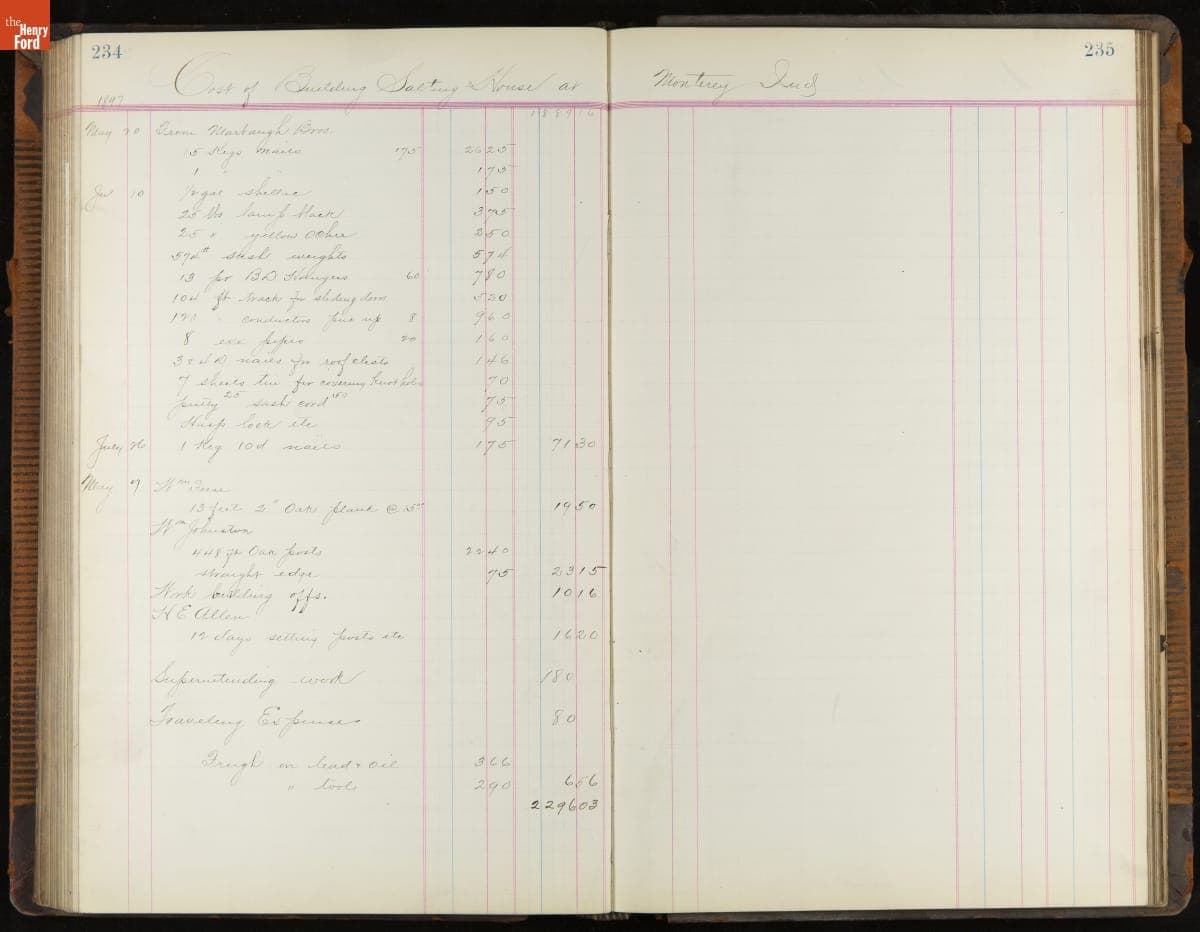 the Henry Ford
234
235
Cost of Building Salting House at Monterey Ind
1897
188916
May 20 From Marbaugh Bros.
15 Kegs nails 175 2625
1 " " 175
10 1/2 gal shellac 150
25 lbs lamp black 375
25 " yellow Ochre 250
574# sash weights 574
13 pr B D Hangers 60 780
104 ft track for sliding doors 520
120 " conductors pipe up 8 960
8 eve pipes 20 160
3 & 4 D nails for roof cleats 146
7 sheets tin for covering knot holes 70
putty 25 sash cord 50 75
Hasp lock etc 95
July 26 1 Keg 10d nails 175 7130
May 7 Wm
13 feet 2" Oak plank @ 15 1950
Wm Johnston
448 ft Oak posts 2240
straight edge 75 2315
Work building offs. 1016
H E Allen
12 days setting posts etc 1620
Superintending work 180
Traveling Expenses 80
Freigh on lead & oil 366
" tools 290 656
229603